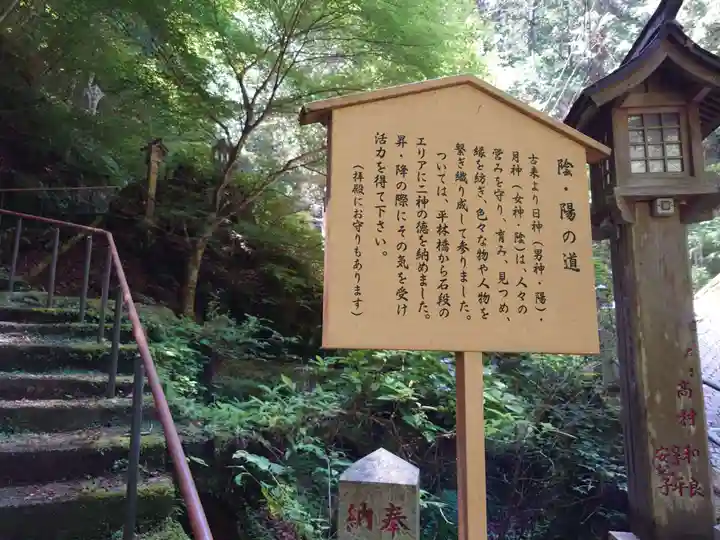 陰・陽の道
古来より日神（男神・陽）・
月神（女神・陰）は、人々の
営みを守り、育み、見つめ、
縁を紡ぎ、色々な物や人物を
繋ぎ織り成して参りました。
ついては、平林橋から石段の
エリアに二神の徳を納めました。
昇・降の際にその気を受け
活力を得て下さい。
（拝殿にお守りもあります）
奉納
高村
和良